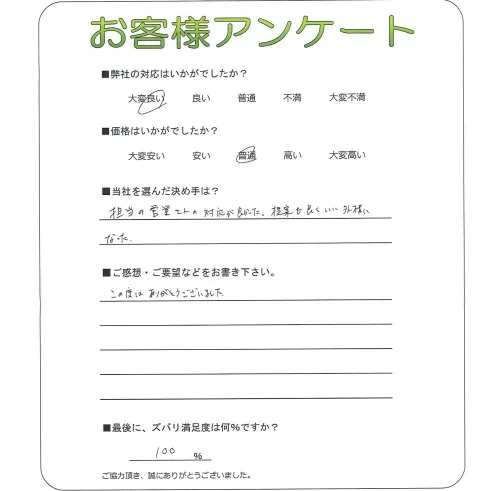 お客様アンケート
■弊社の対応はいかがでしたか？
大変良い 良い 普通 不満 大変不満
■価格はいかがでしたか？
大変安い 安い 普通 高い 大変高い
■当社を選んだ決め手は？
担当の営業さんの対応が良かった、提案も良くいい外構に
なった.
■ご感想・ご要望などをお書き下さい。
この度はありがとうございました
■最後に、ズバリ満足度は何％ですか？
100 %
ご協力頂き、誠にありがとうございました。